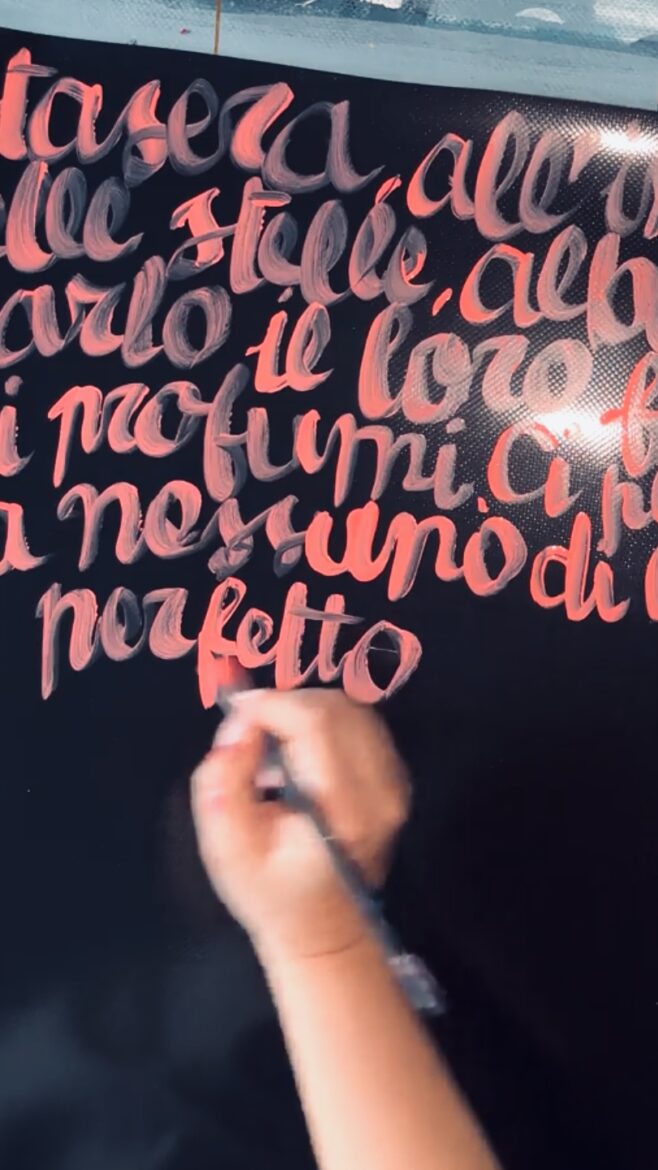 tasera, all'o
elle stelle, alba
arlo il loro
i profumi. Ci
a nessuno di
perfetto